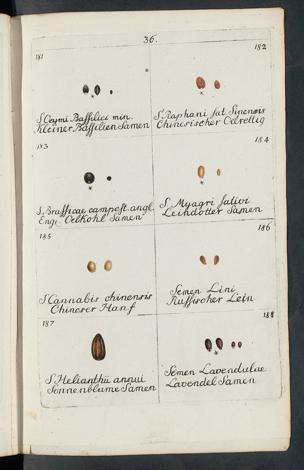 36.
181
182
S. Ocymi Bassilici min.
Kleiner Bassilien Samen
S. Raphani sat. Sinensis
Chinesischer Oelrettig
183
184
S. Brassicae campest. angl.
Engl. Oelkohl Samen
S. Myagri sativi
Leindotter Samen
185
186
S. Cannabis chinensis
Chineser Hanf
Semen Lini
Russischer Lein
187
188
S. Helianthii annui
Sonnenblume Samen
Semen Lavendulae
Lavendel Samen